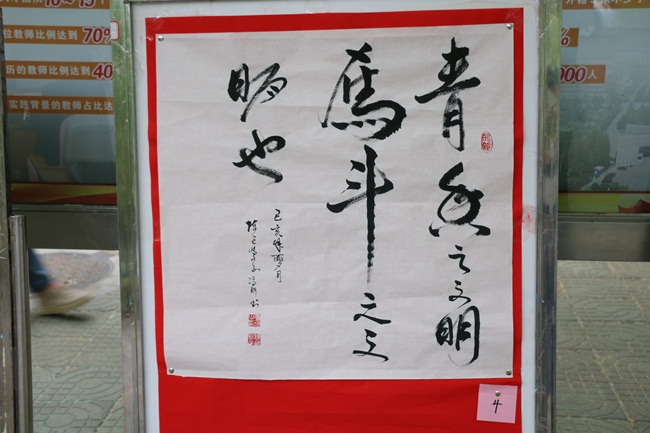 位教师比例达到 70%
历的教师比例达到 40
实践背景的教师占比达
%
000人
青春之文明
奮斗之文
明也
己亥年
4